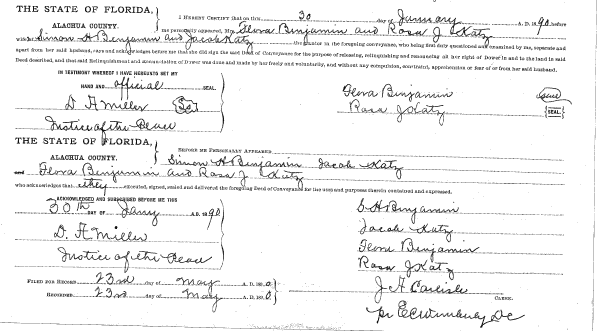 THE STATE OF FLORIDA,
ALACHUA COUNTY.
I HEREBY CERTIFY that on this 30 day of January A. D. 1890, before
me personally appeared, Mrs. Flora Benjamin and Rosa J. Katz
wife Simon H Benjamin and Jacob Katz the grantor in the foregoing conveyance, who being first duly questioned and examined by me, separate and
apart from her said husband, says and acknowledges before me that she did sign the said Deed of Conveyance for the purpose of releasing, relinquishing and renouncing all her right of Dower in and to the land in said
Deed described, and that said Relinquishment and Renunciation of Dower was done and made by her freely and voluntarily, and without any compulsion, constraint, apprehension or fear of or from her said husband.
IN TESTIMONY WHEREOF I HAVE HEREUNTO SET MY
HAND AND official SEAL.
D. A Miller
Justice of the Peace
Flora Benjamin
Rosa J Katz SEAL.
THE STATE OF FLORIDA,
ALACHUA COUNTY.
BEFORE ME PERSONALLY APPEARED Simon H Benjamin Jacob Katz
and Flora Benjamin and Rosa J Katz
who acknowledges that they executed, signed, sealed and delivered the foregoing Deed of Conveyance for the uses and purposes therein contained and expressed.
ACKNOWLEDGED AND SUBSCRIBED BEFORE ME THIS
30th DAY OF Jany A. D. 1890
D. A. Miller
Justice of the Peace
S H Benjamin
Jacob Katz
Flora Benjamin
Rosa J Katz
FILED FOR RECORD 23rd day of May A. D. 1890
RECORDED 23rd day of May A. D. 1890
J A Carlisle CLERK.
pr E C Wimberly DC